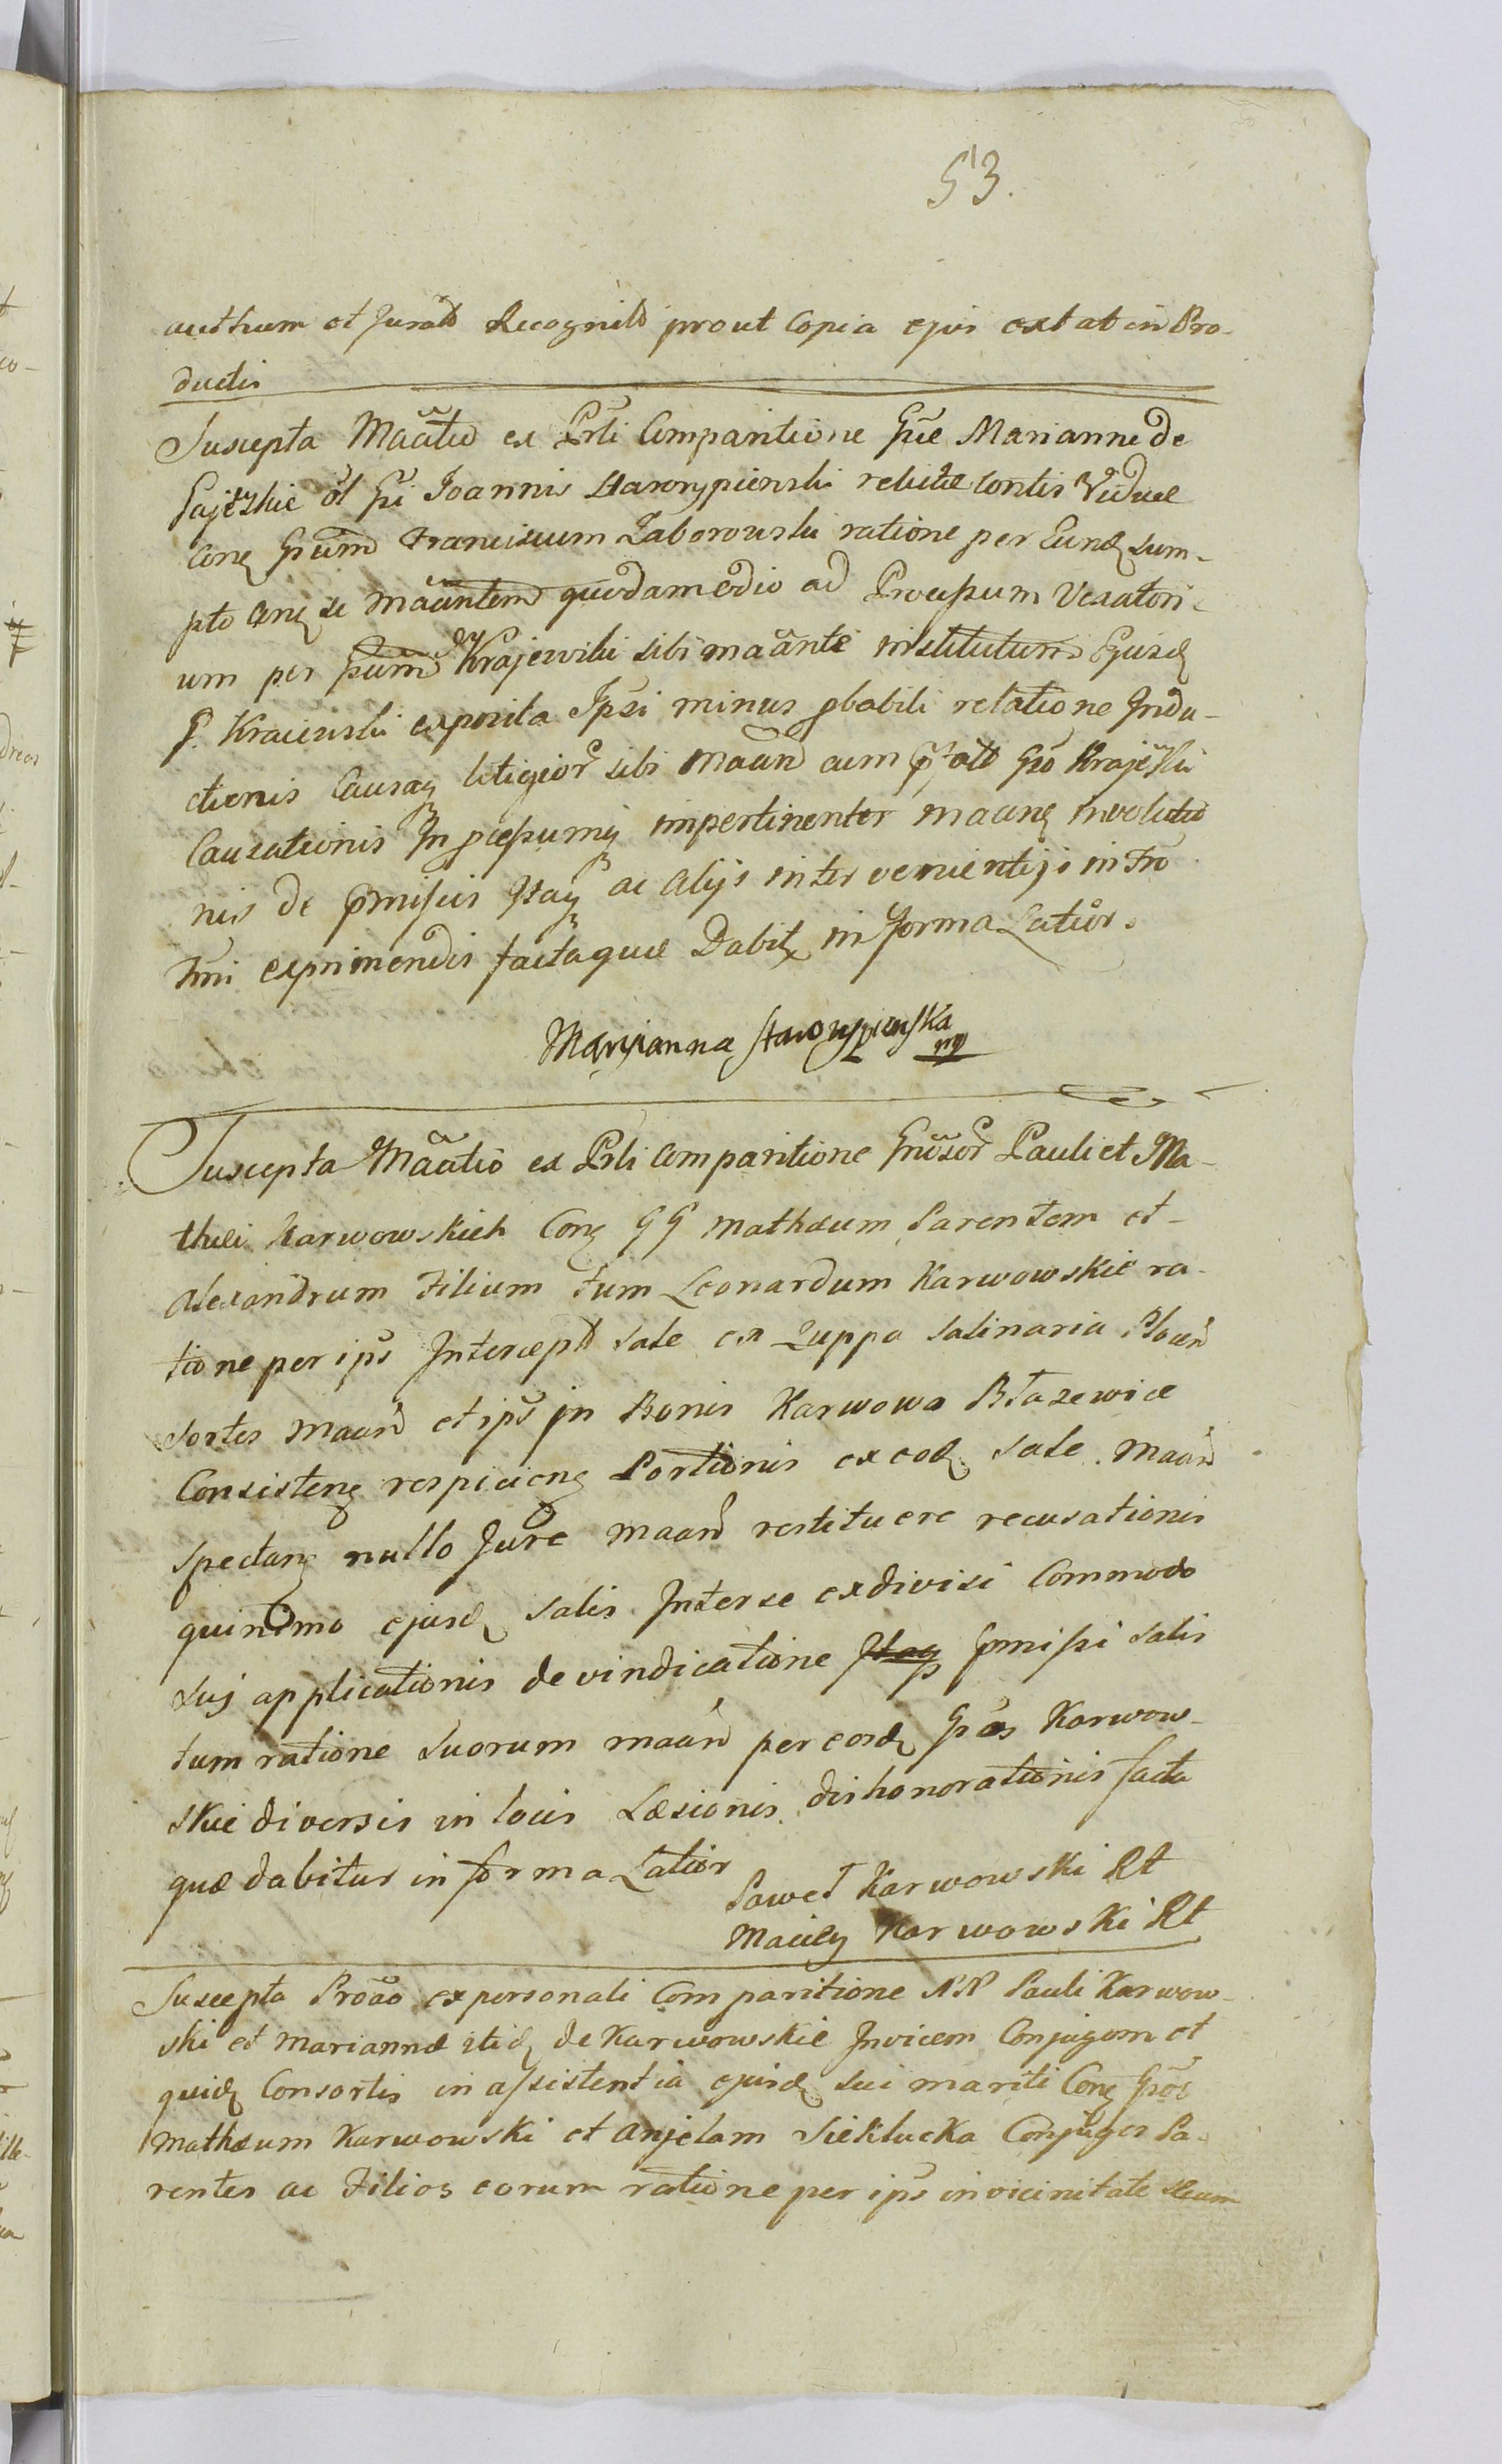 53.
authum et Jurato Recognito prout Copia ejus extat in Pro-
ductis
Suscepta Maãtio ex Prli Comparitione Gsae Marianne de
ol Gsi Joannis Starorypienski relictae Contis Viduae
Conq Gsum Franciscum Zaborowski ratione per Eundq sum-
pto anq se Maãntem quodamodio ad Processum Vexatori-
um per Gsum Krajewski sibi maãnte institutum Ejusdq
G. Kraiewski exposita Ipsi minus pbabili relatione Indu-
ctionis Causaq litigior sibi Maãn cum Gso Krajewski
Causationis In pcessumq impertinenter maanq Involutio
nis de pmissis Itaq ac alijs intervenientijs in Tro
tmi exprimendis factaque Dabitr in forma Latior.
Maryianna Staworypienska
mp
Suscepta Maãtio ex Prli Comparitione Gnosor Pauli et Ma-
thei Karwowskich Conq GG Mathaeum Parentem et
Alexandrum Filium tum Leonardum Karwowskie ra-
tione per ips Intercept sale ex Zuppa Salinaria
sortes Maan et ips in Bonis Karwowo Błazewice
Consistenq respicienq Portionis ex eodq sale Maan
spectanq nullo Jure maan restituere recusationis
quinimo ejusdq salis Inter se exdivisi Commodo
suj applicationis de vindicatione Itaq pmissi salis
tum ratione suorum maan per eosdq Gsos Karwow-
skie diversis in locis Laesionis dishonorationis facta
quae dabitur in forma Latior
Paweł Karwowski Rt
Maciey Karwowski Rt
Suscepta Proão ex personali Comparitione NN Pauli Karwow-
ski et Mariannae itidq de Karwowskie Invicem Conjugum et
quidq Consortis in assistentia ejusdq sui mariti Conq Gsos
Mathaeum Karwowski et Anjelam Sieklucka Conjuges Pa-
rentes ac Filios eorum ratione per ips in vicinitate secum